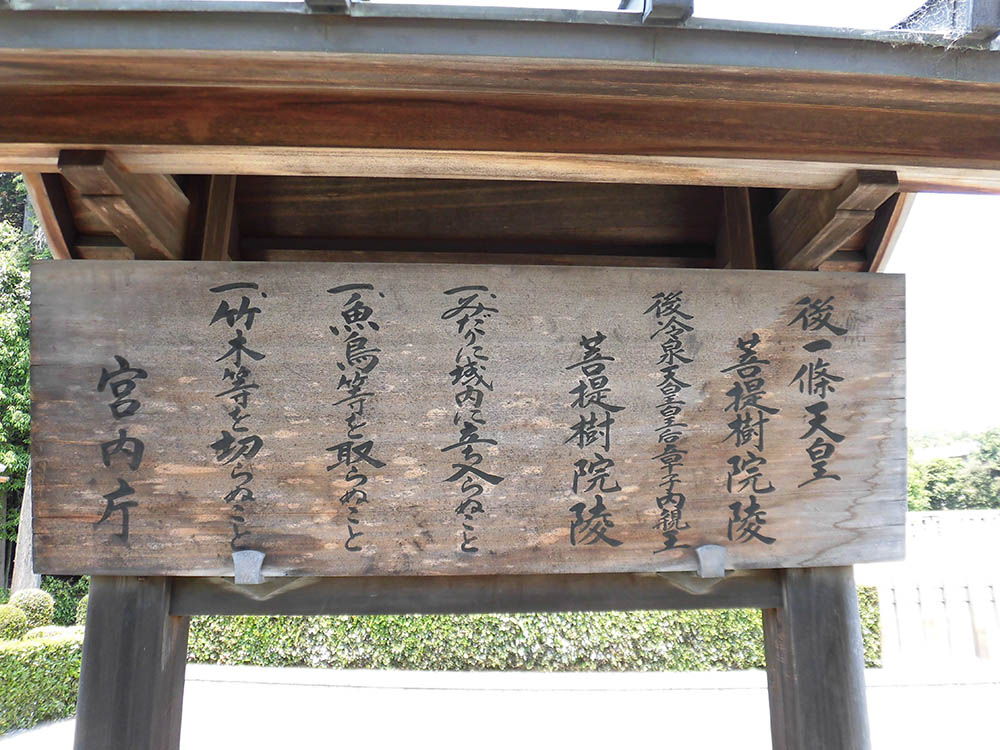 後一條天皇
菩提樹院陵
後冷泉天皇皇后章子内親王
菩提樹院陵
一、みだりに域内に立ち入らぬこと
一、魚鳥等を取らぬこと
一、竹木等を切らぬこと
宮内庁